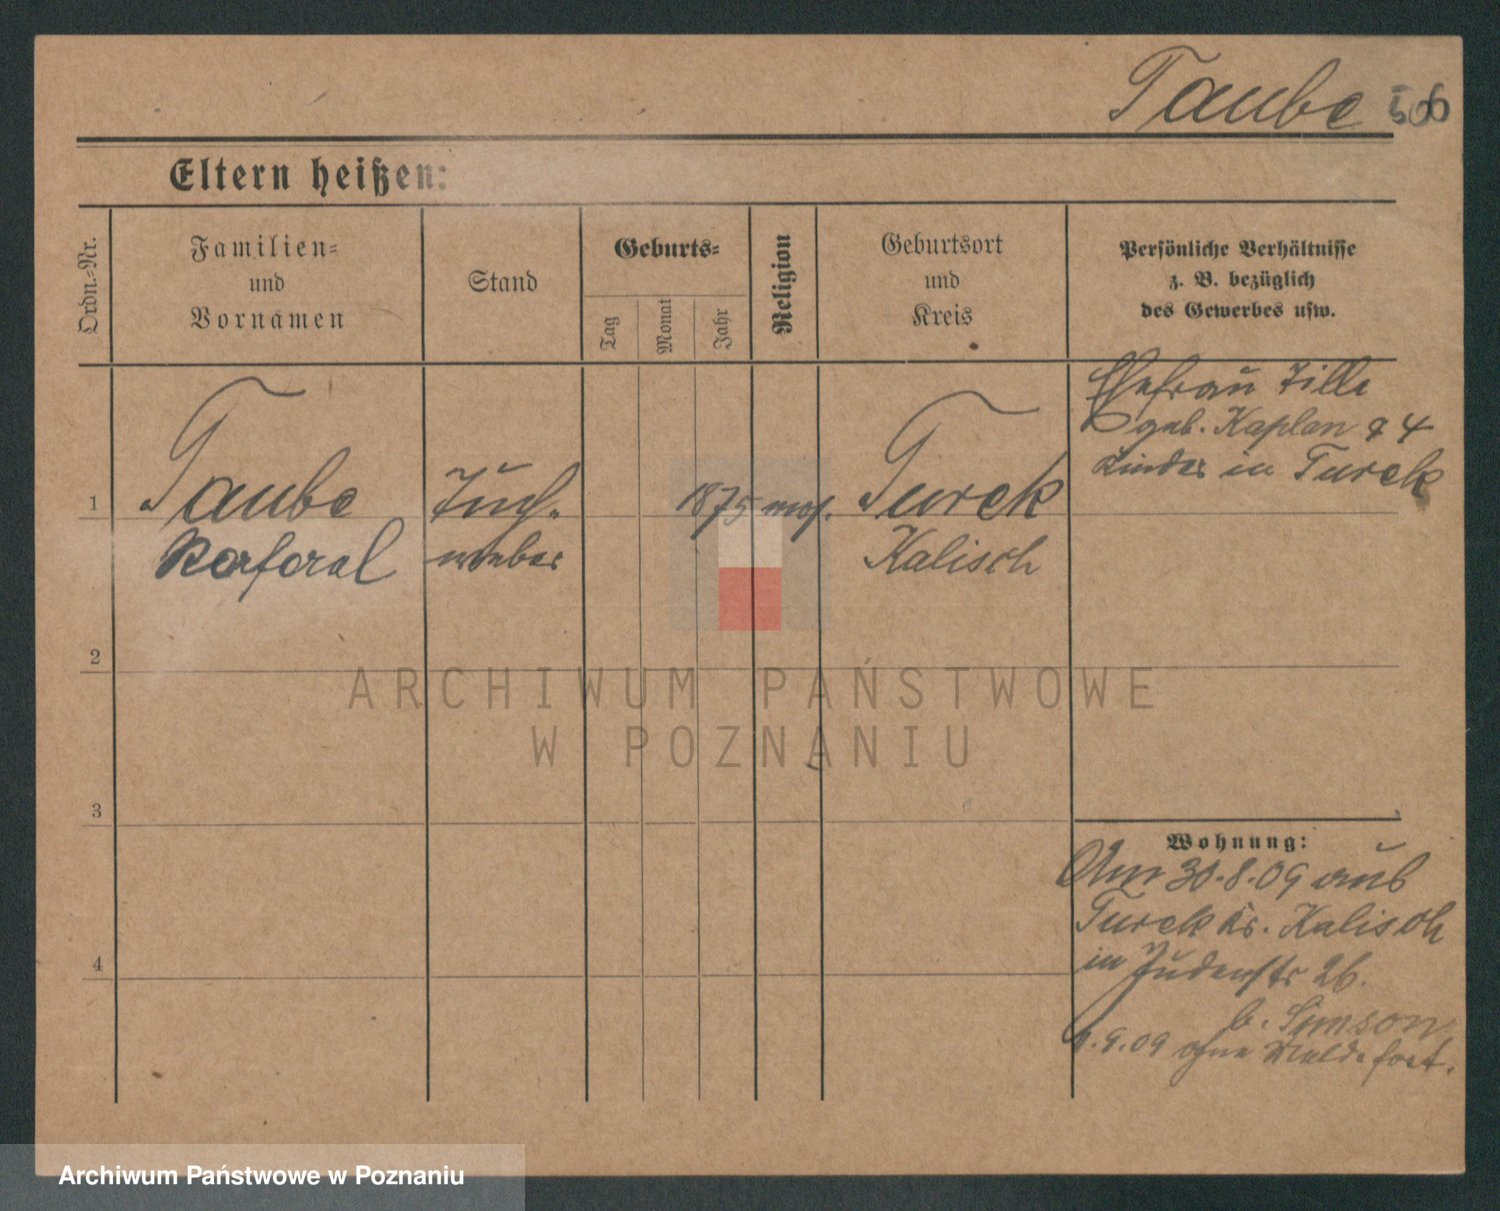 Taube
Eltern heißen:
Ordn.-Nr.
Familien-
und
Vornamen
Stand
Geburts-
Tag
Monat
Jahr
Religion
Geburtsort
und
Kreis
Persönliche Verhältnisse
z. B. bezüglich
des Gewerbes usw.
1
Taube
Tuch-
1875
mos.
Turek
weber
Kalisch
Ehefrau Zille
geb. Kaplan & 4
Kinder in Turek
2
3
4
Wohnung:
Am 30.8.09 aus
Turek Kr. Kalisch
in Judenstr 26.
b. Simson
9.09 ohne Melde fort.
ARCHIWUM PAŃSTWOWE
W POZNANIU
Archiwum Państwowe w Poznaniu